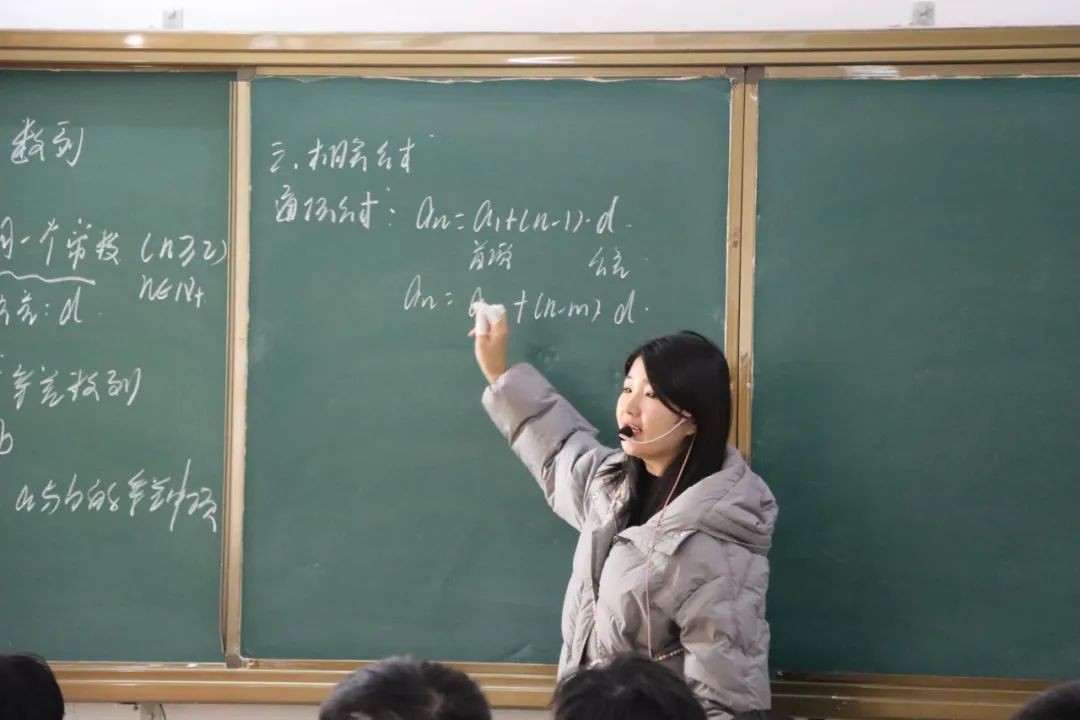 数列
同一个常数 (n≥2)
n∈N+
公差: d
等差数列
b
a与b的等差中项
三、相关公式
通项公式: an=a1+(n-1)·d.
首项 公差.
an= a +(n-m) d.